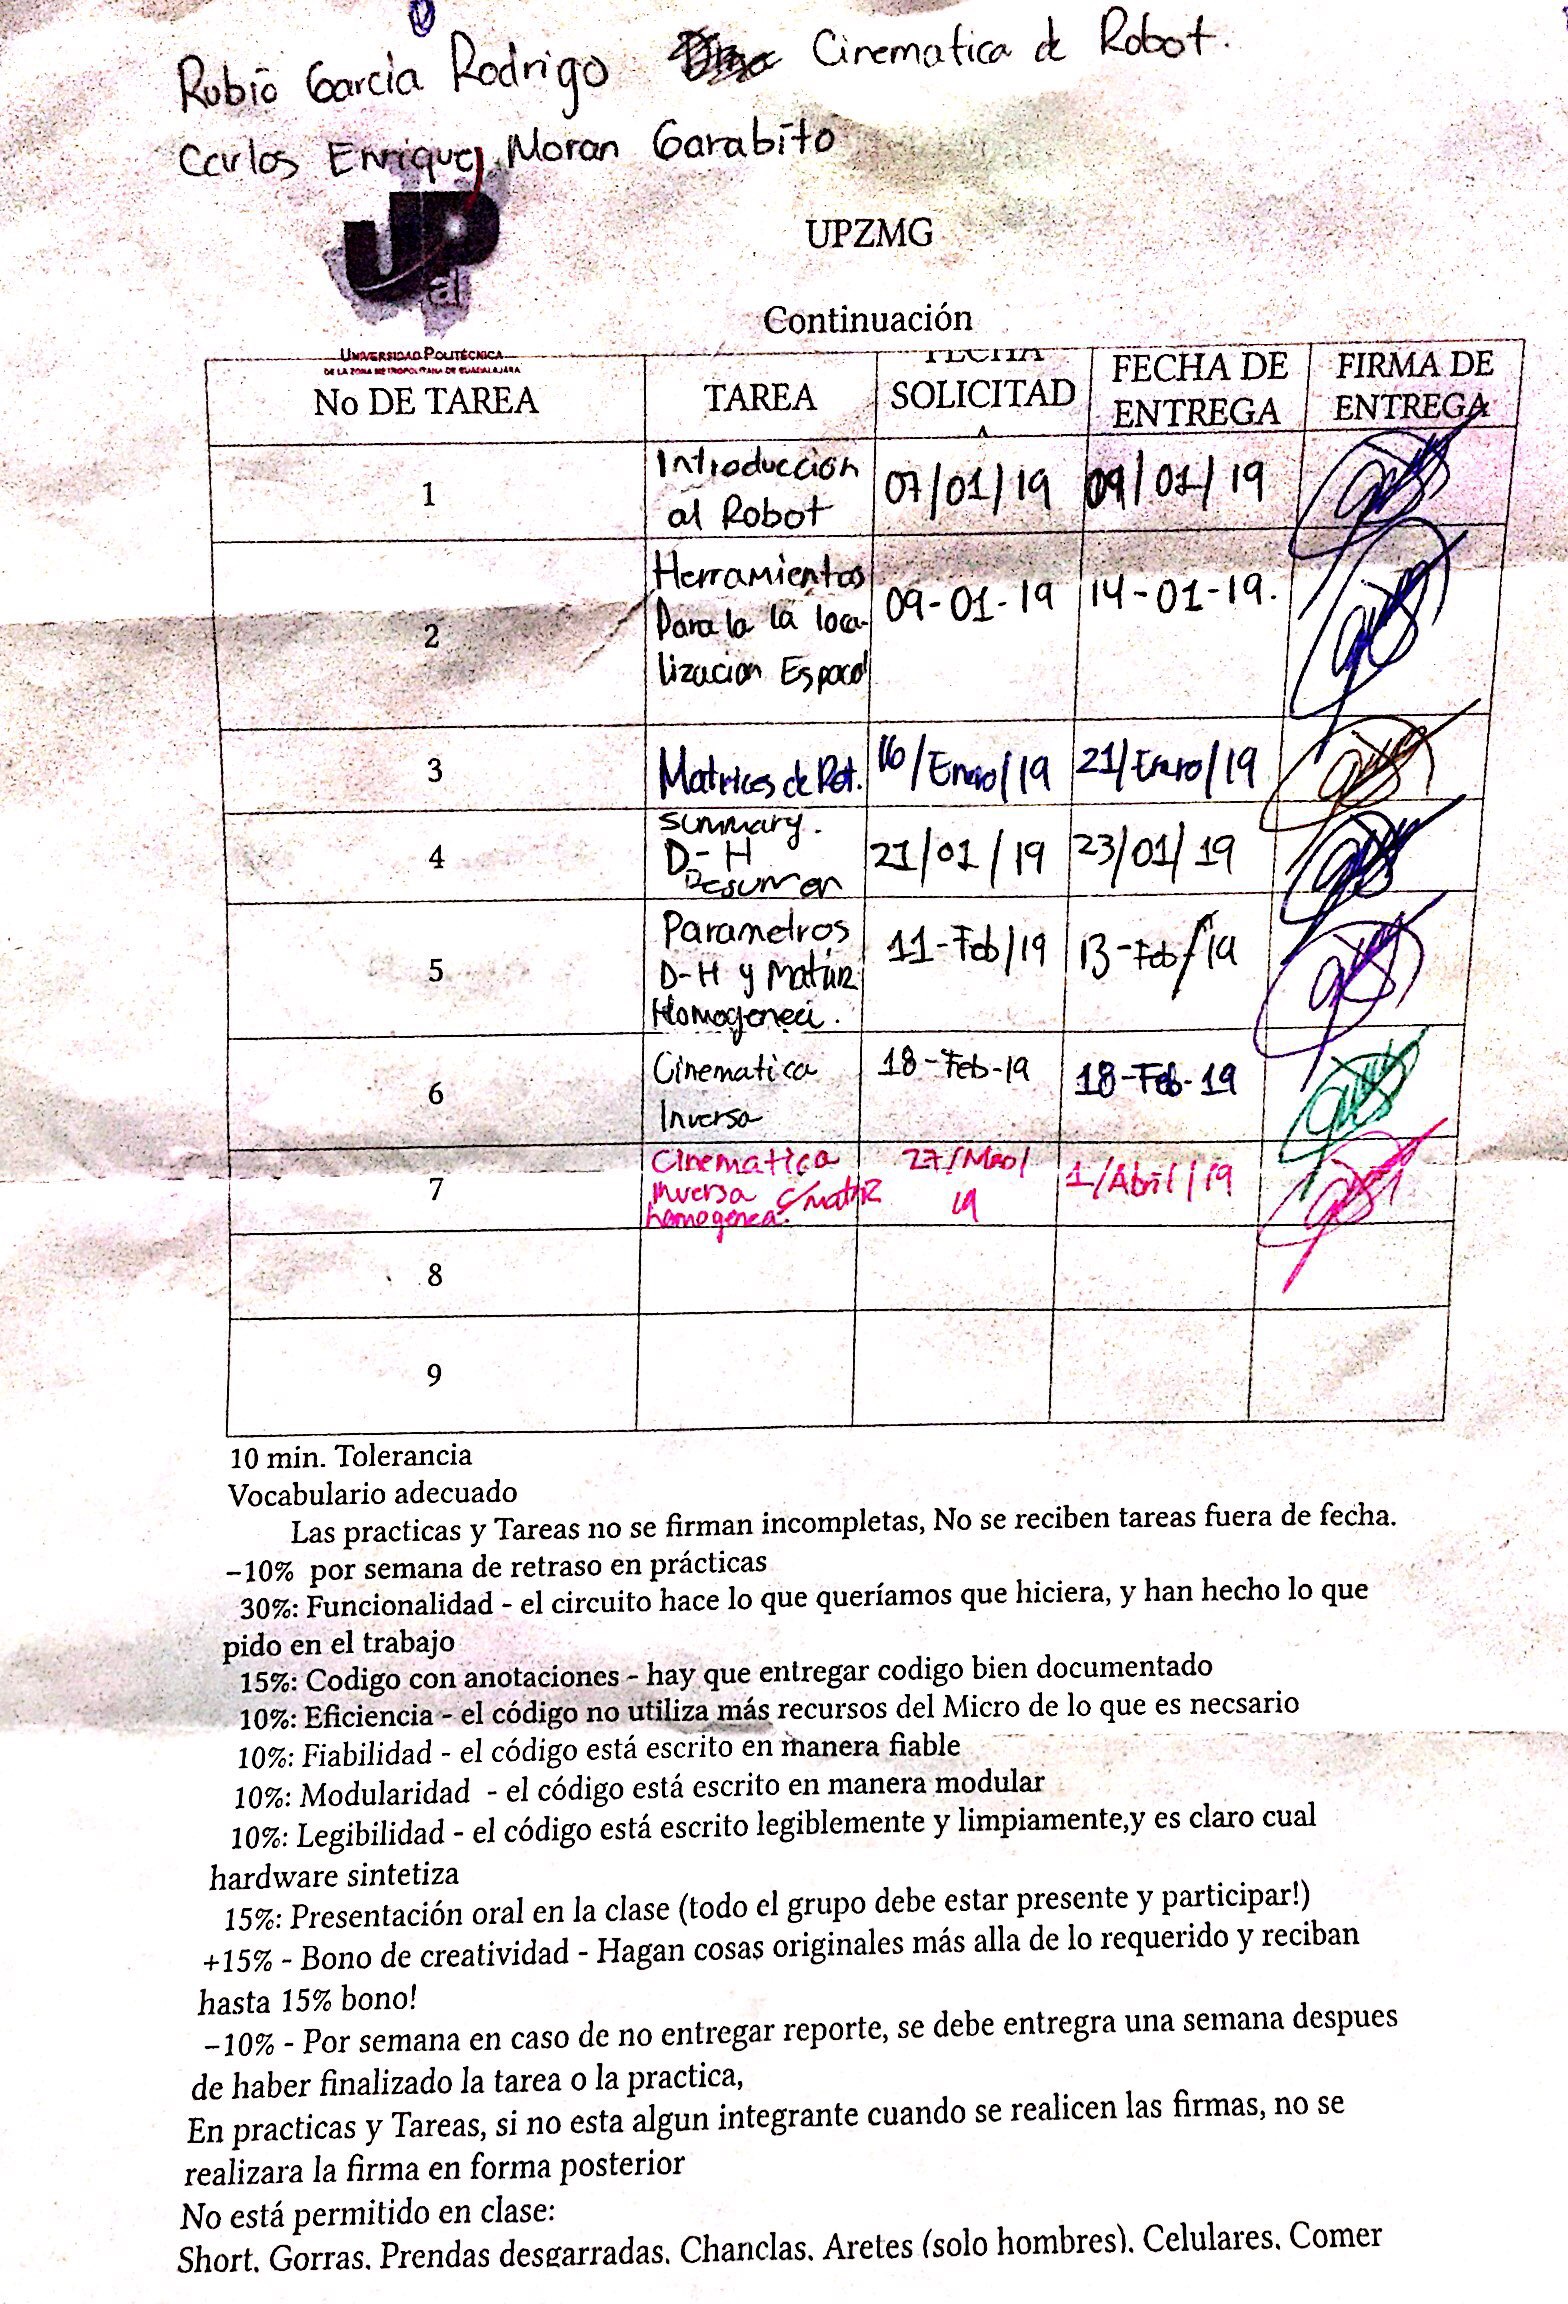 Rubio Garcia Rodrigo Cinematica de Robot.
Carlos Enrique Moran Garabito
UP
al
UNIVERSIDAD POLITÉCNICA
DE LA ZONA METROPOLITANA DE GUADALAJARA
UPZMG
Continuación
No DE TAREA TAREA FECHA SOLICITAD A FECHA DE ENTREGA FIRMA DE ENTREGA
1 Introduccion al Robot 07/01/19 09/01/19
2 Herramientas Para la la loca- lizacion Espacal 09-01-19 14-01-19.
3 Matrices de Rot. 16/Enero/19 21/Enero/19
4 Summary. D-H Resumen 21/01/19 23/01/19
5 Parametros D-H y Matriz Homogenea. 11-Feb/19 13-Feb/19
6 Cinematica Inversa 18-Feb-19 18-Feb-19
7 Cinematica Inversa c/matriz homogenea. 27/ / 19 1/Abril/19
8
9
10 min. Tolerancia
Vocabulario adecuado
Las practicas y Tareas no se firman incompletas, No se reciben tareas fuera de fecha.
−10% por semana de retraso en prácticas
30%: Funcionalidad - el circuito hace lo que queríamos que hiciera, y han hecho lo que
pido en el trabajo
15%: Codigo con anotaciones - hay que entregar codigo bien documentado
10%: Eficiencia - el código no utiliza más recursos del Micro de lo que es necsario
10%: Fiabilidad - el código está escrito en manera fiable
10%: Modularidad - el código está escrito en manera modular
10%: Legibilidad - el código está escrito legiblemente y limpiamente,y es claro cual
hardware sintetiza
15%: Presentación oral en la clase (todo el grupo debe estar presente y participar!)
+15% - Bono de creatividad - Hagan cosas originales más alla de lo requerido y reciban
hasta 15% bono!
−10% - Por semana en caso de no entregar reporte, se debe entregra una semana despues
de haber finalizado la tarea o la practica,
En practicas y Tareas, si no esta algun integrante cuando se realicen las firmas, no se
realizara la firma en forma posterior
No está permitido en clase:
Short, Gorras, Prendas desgarradas, Chanclas, Aretes (solo hombres), Celulares, Comer